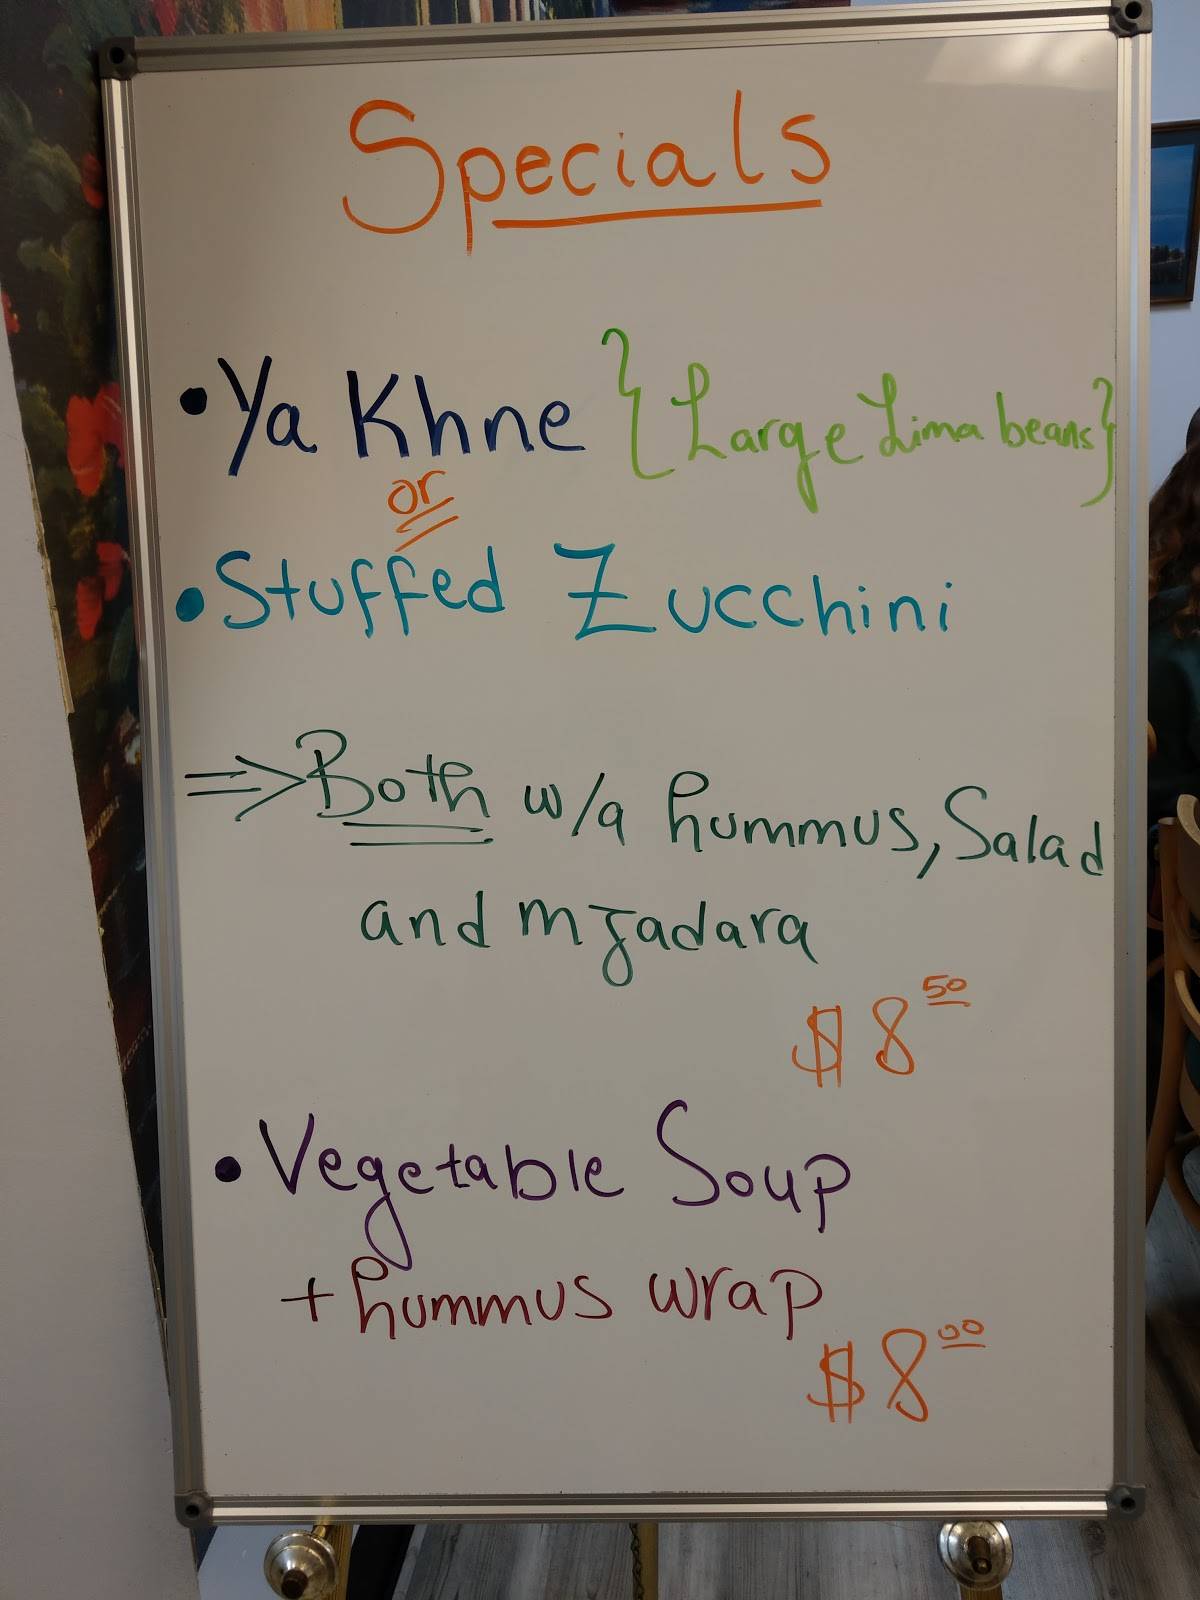 Specials
• Ya Khne {Large Lima beans}
or
• Stuffed Zucchini
⇒ Both w/a hummus, Salad
and mjadara
$8 50
• Vegetable Soup
+ hummus wrap
$8 00